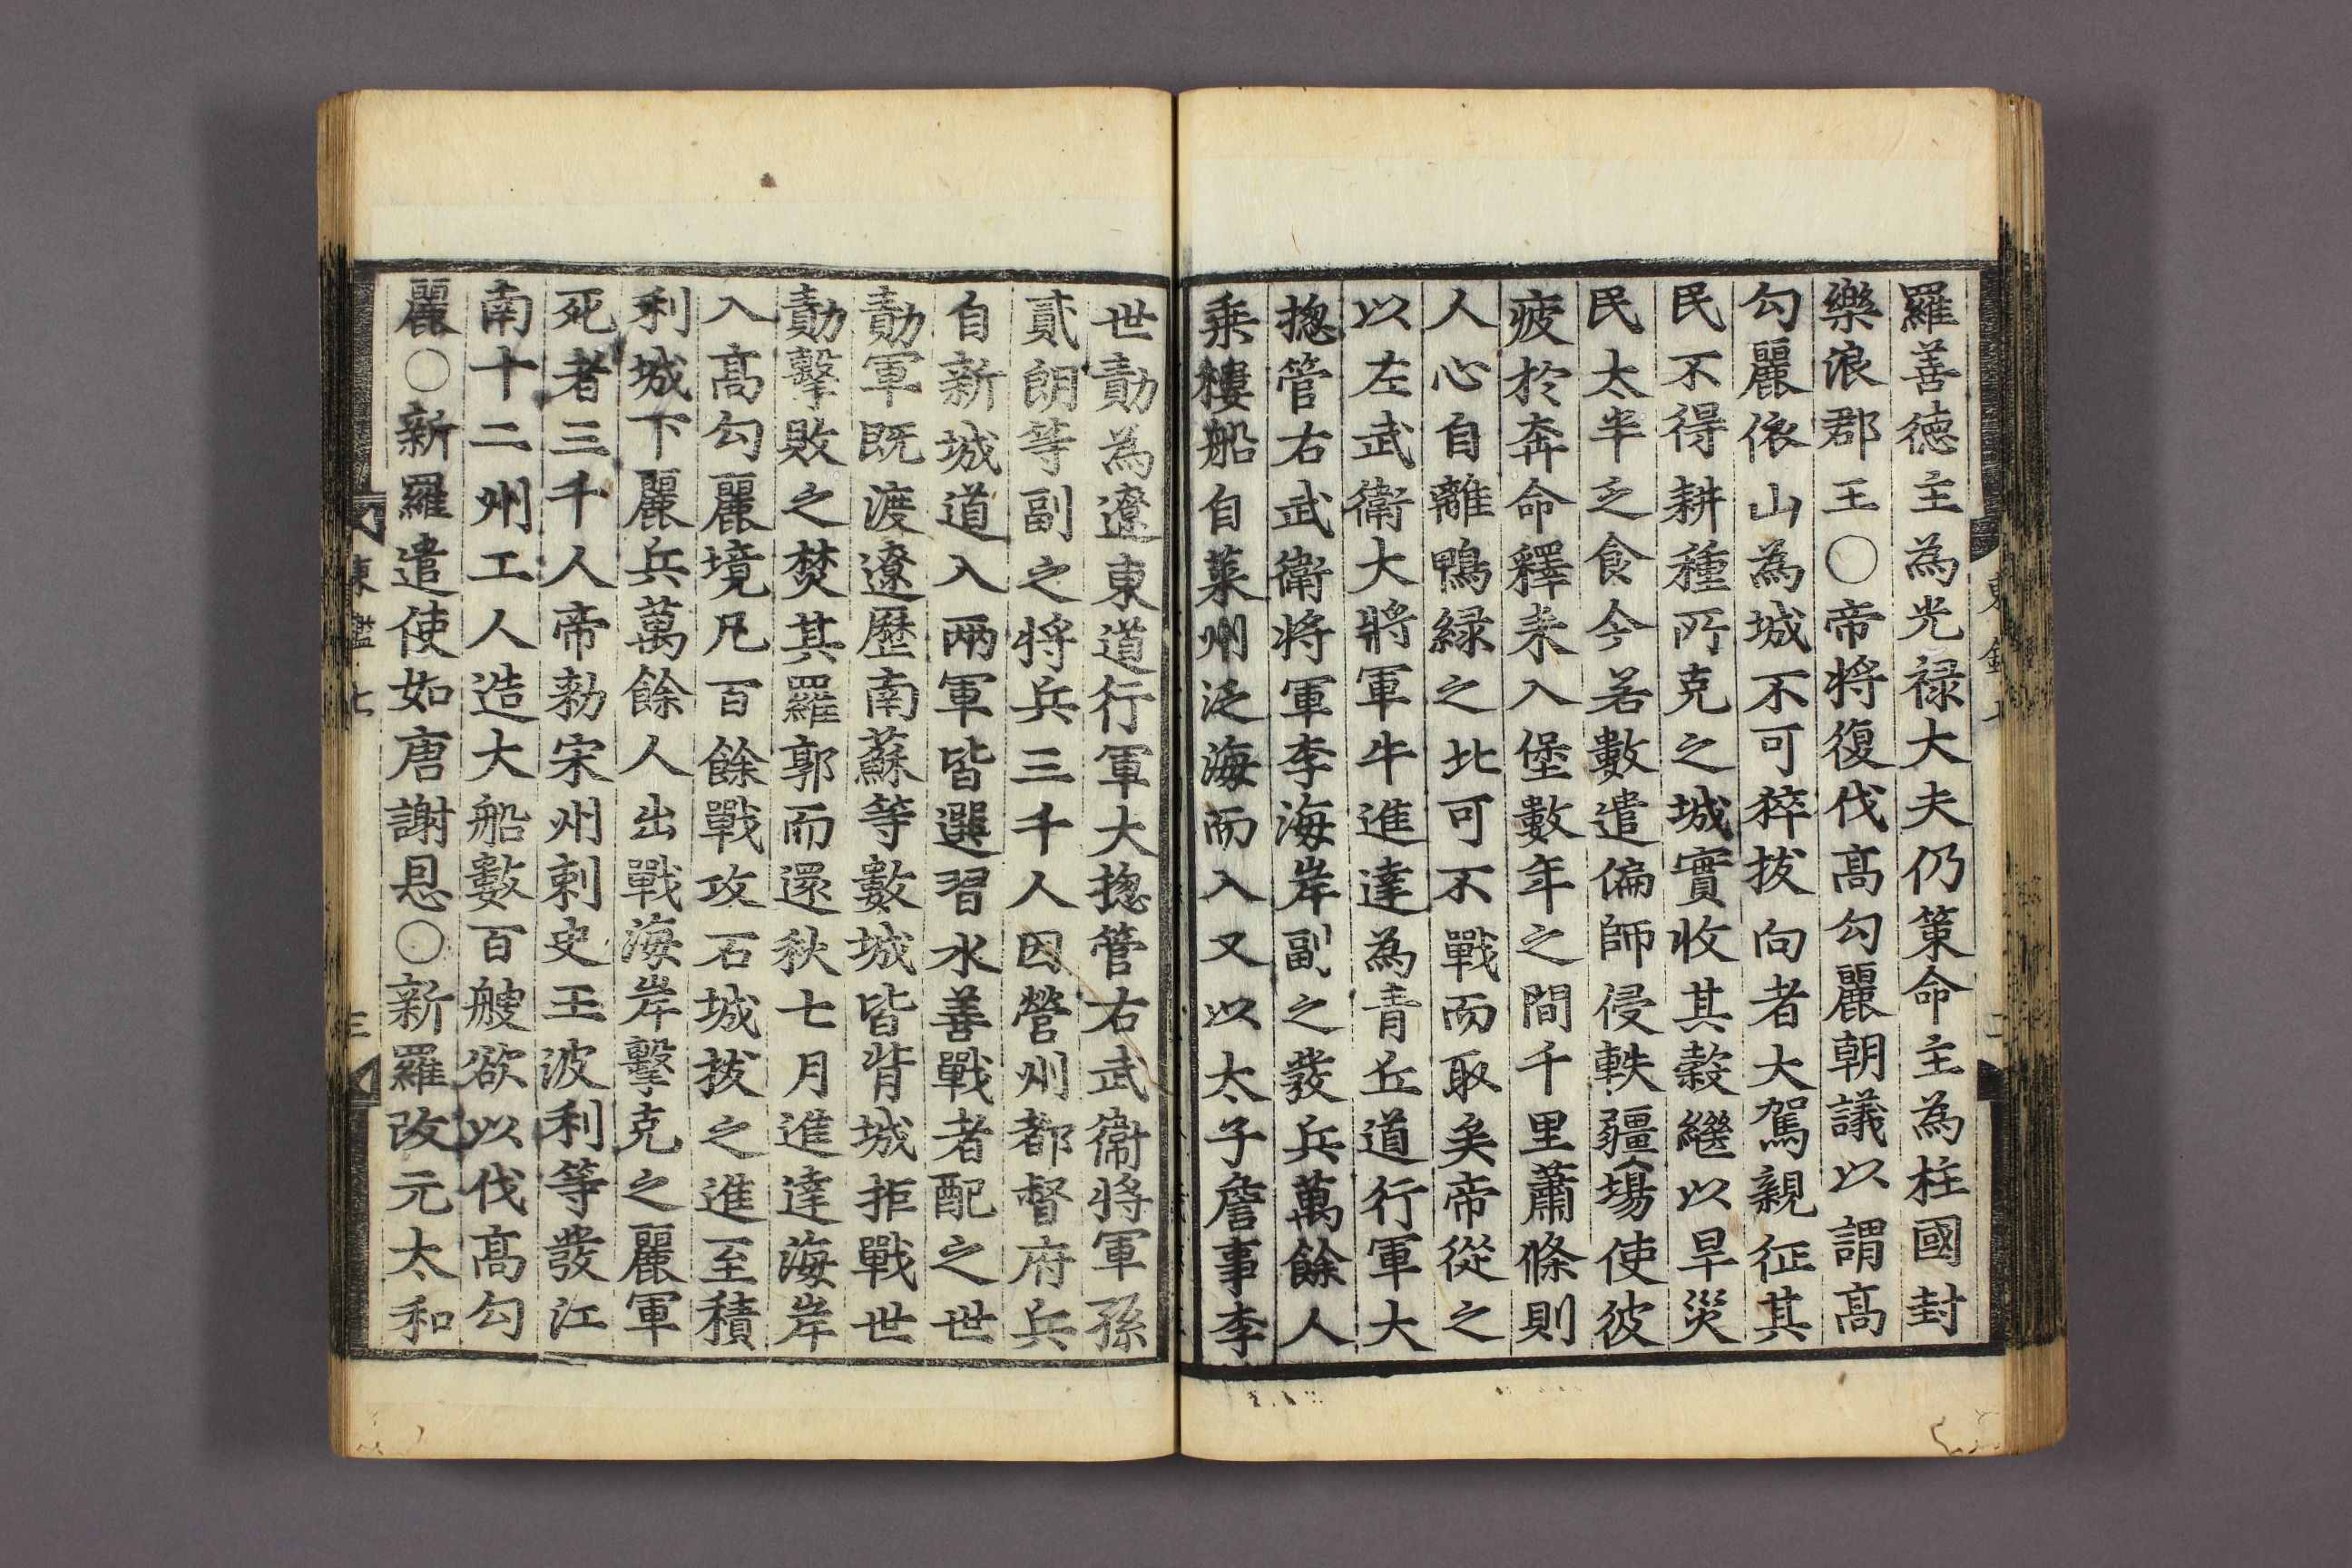 羅善德主為光祿大夫仍策命主為柱國封
樂浪郡王○帝將復伐高勾麗朝議以謂高
勾麗依山為城不可猝拔向者大駕親征其
民不得耕種所克之城實收其穀繼以旱災
民太半乏食今若數遣偏師侵軼疆場使彼
疲於奔命釋耒入堡數年之間千里蕭條則
人心自離鴨緑之北可不戰而取矣帝從之
以左武衛大將軍牛進達為青丘道行軍大
揔管右武衛將軍李海岸副之發兵萬餘人
乗樓船自萊州泛海而入又以太子詹事李
世勣為遼東道行軍大揔管右武衛將軍孫
貳朗等副之將兵三千人因營州都督府兵
自新城道入兩軍皆選習水善戰者配之世
勣軍既渡遼歷南蘇等數城皆背城拒戰世
勣擊敗之焚其羅郭而還秋七月進達海岸
入高勾麗境凡百餘戰攻石城拔之進至積
利城下麗兵萬餘人出戰海岸擊克之麗軍
死者三千人帝勑宋州刺史王波利等發江
南十二州工人造大船數百艘欲以伐高勾
麗○新羅遣使如唐謝恩○新羅改元太和
東鑑七
三
二